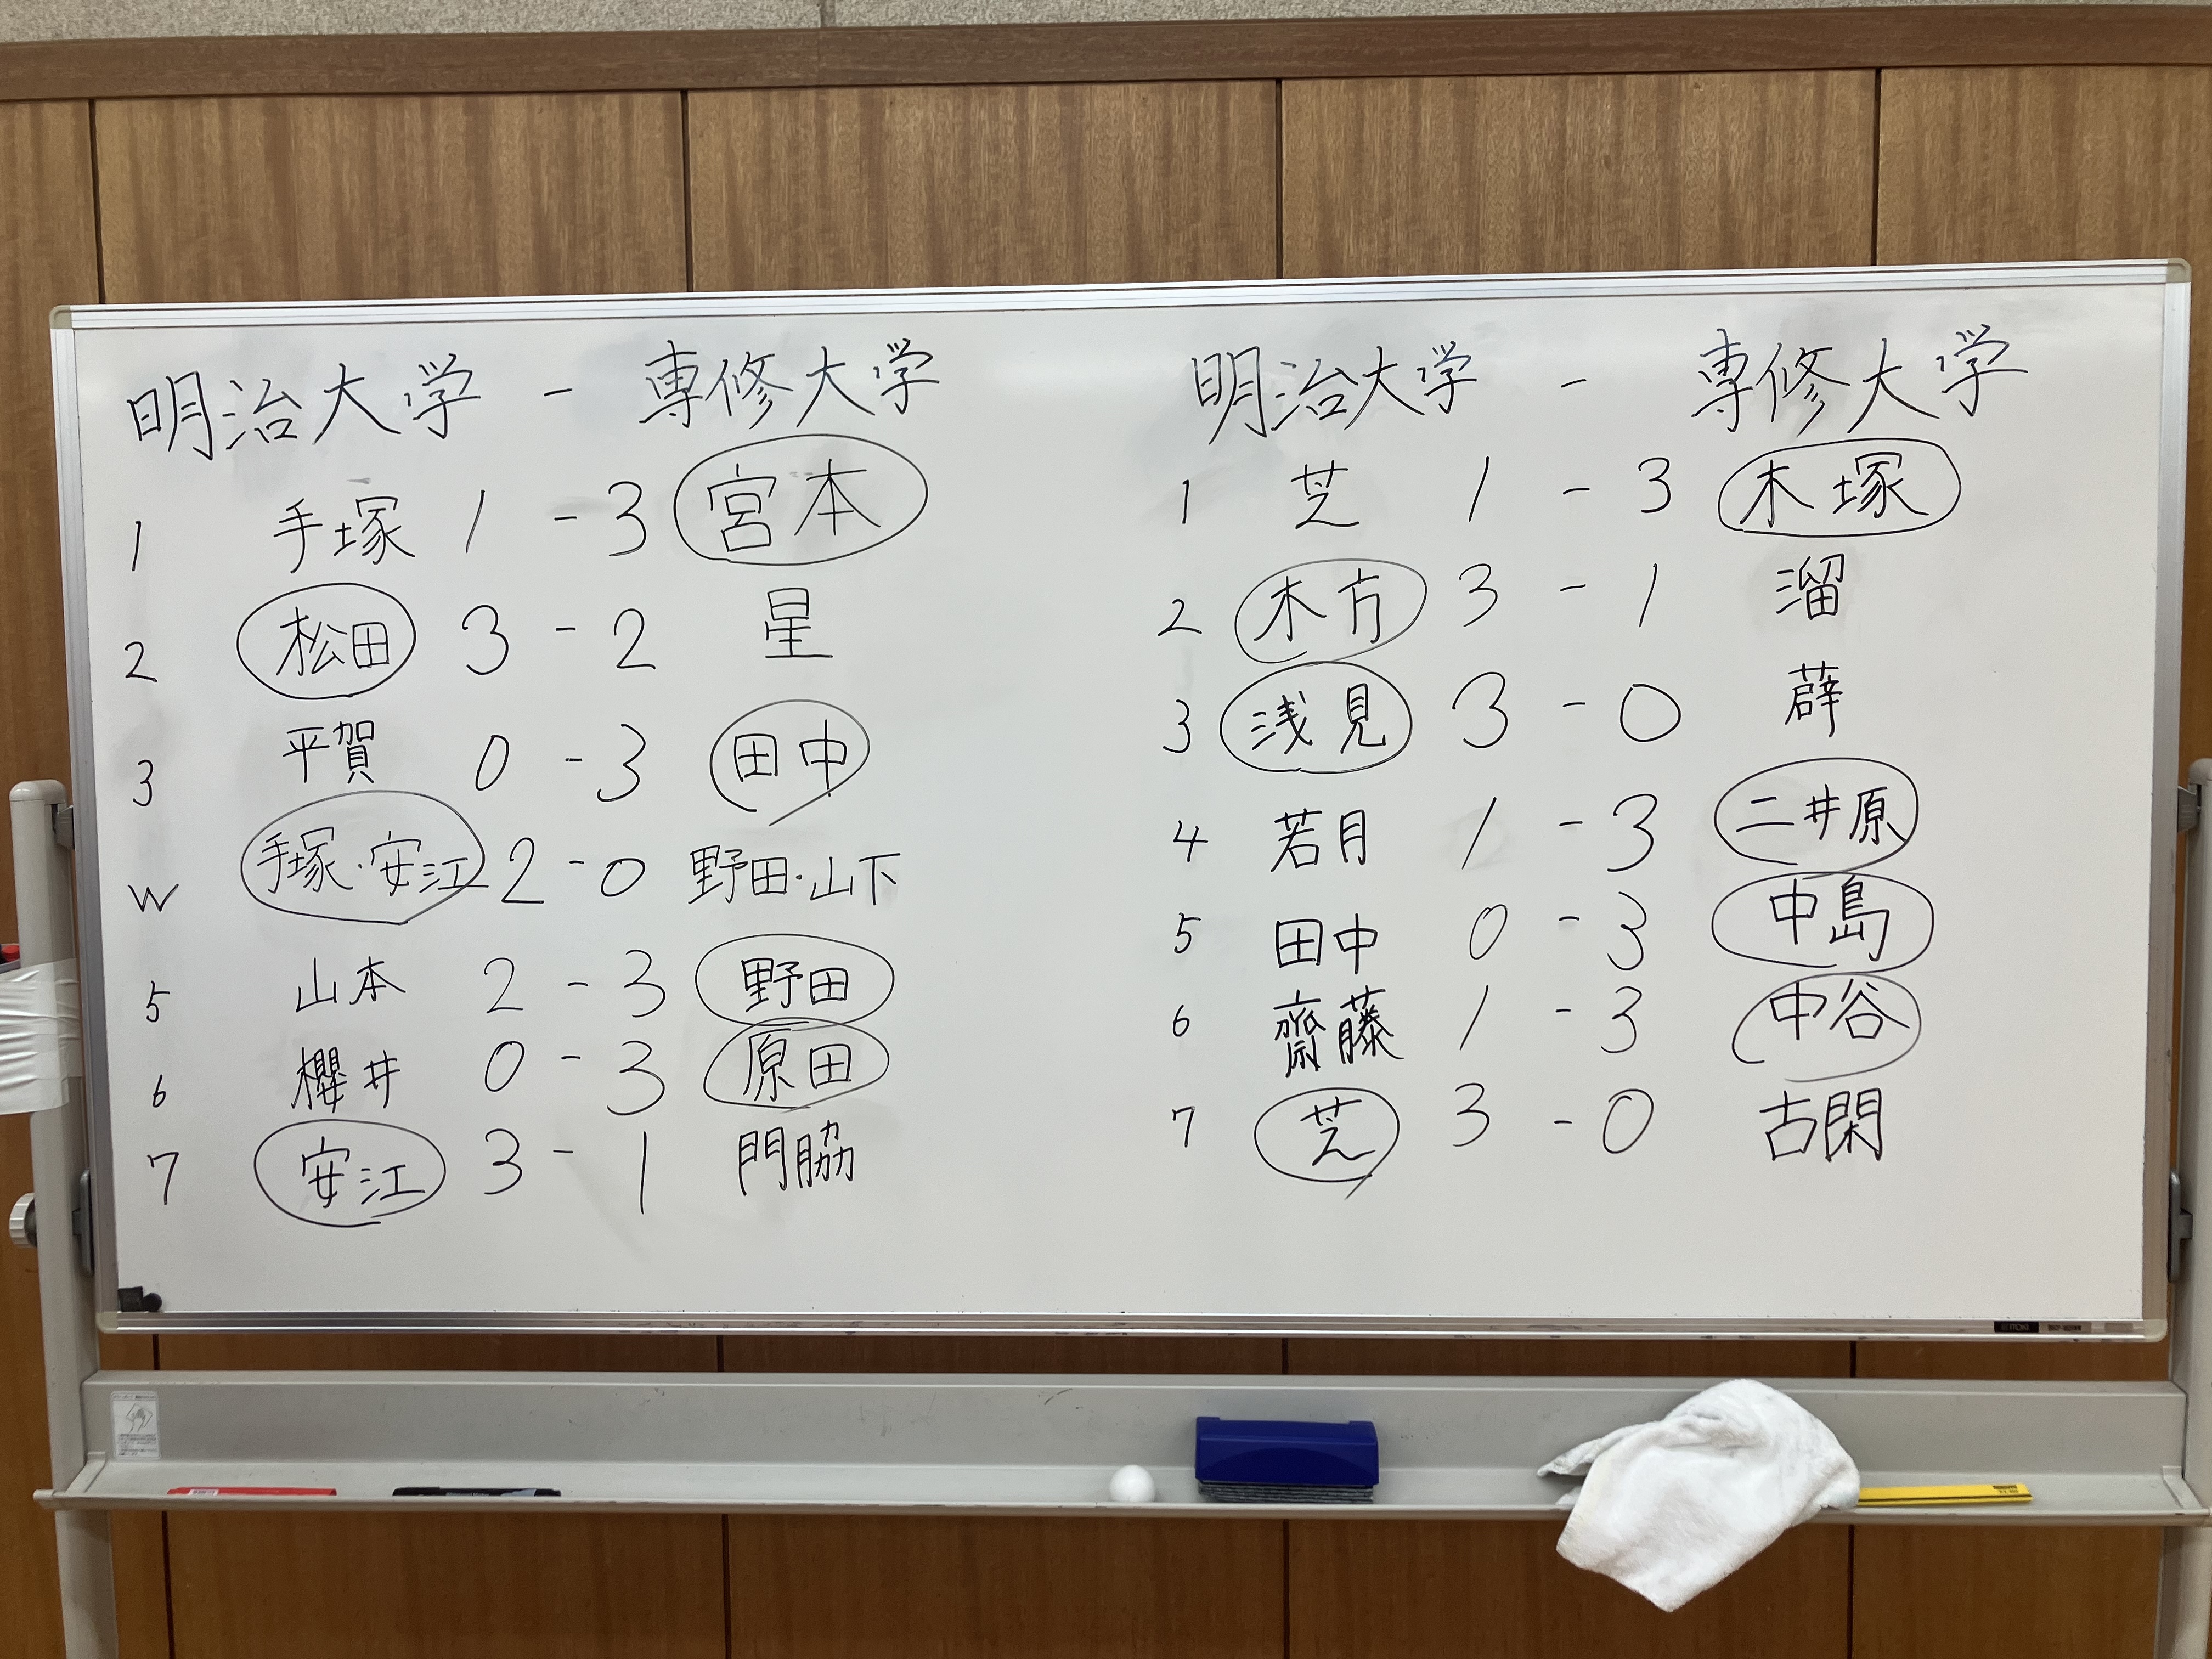 明治大学 - 専修大学
1 手塚 1 - 3 宮本
2 松田 3 - 2 星
3 平賀 0 - 3 田中
W 手塚・安江 2 - 0 野田・山下
5 山本 2 - 3 野田
6 櫻井 0 - 3 原田
7 安江 3 - 1 門脇
明治大学 - 専修大学
1 芝 1 - 3 木塚
2 木方 3 - 1 溜
3 浅見 3 - 0 薜
4 若月 1 - 3 二井原
5 田中 0 - 3 中島
6 齋藤 1 - 3 中谷
7 芝 3 - 0 古閑
ITOKI